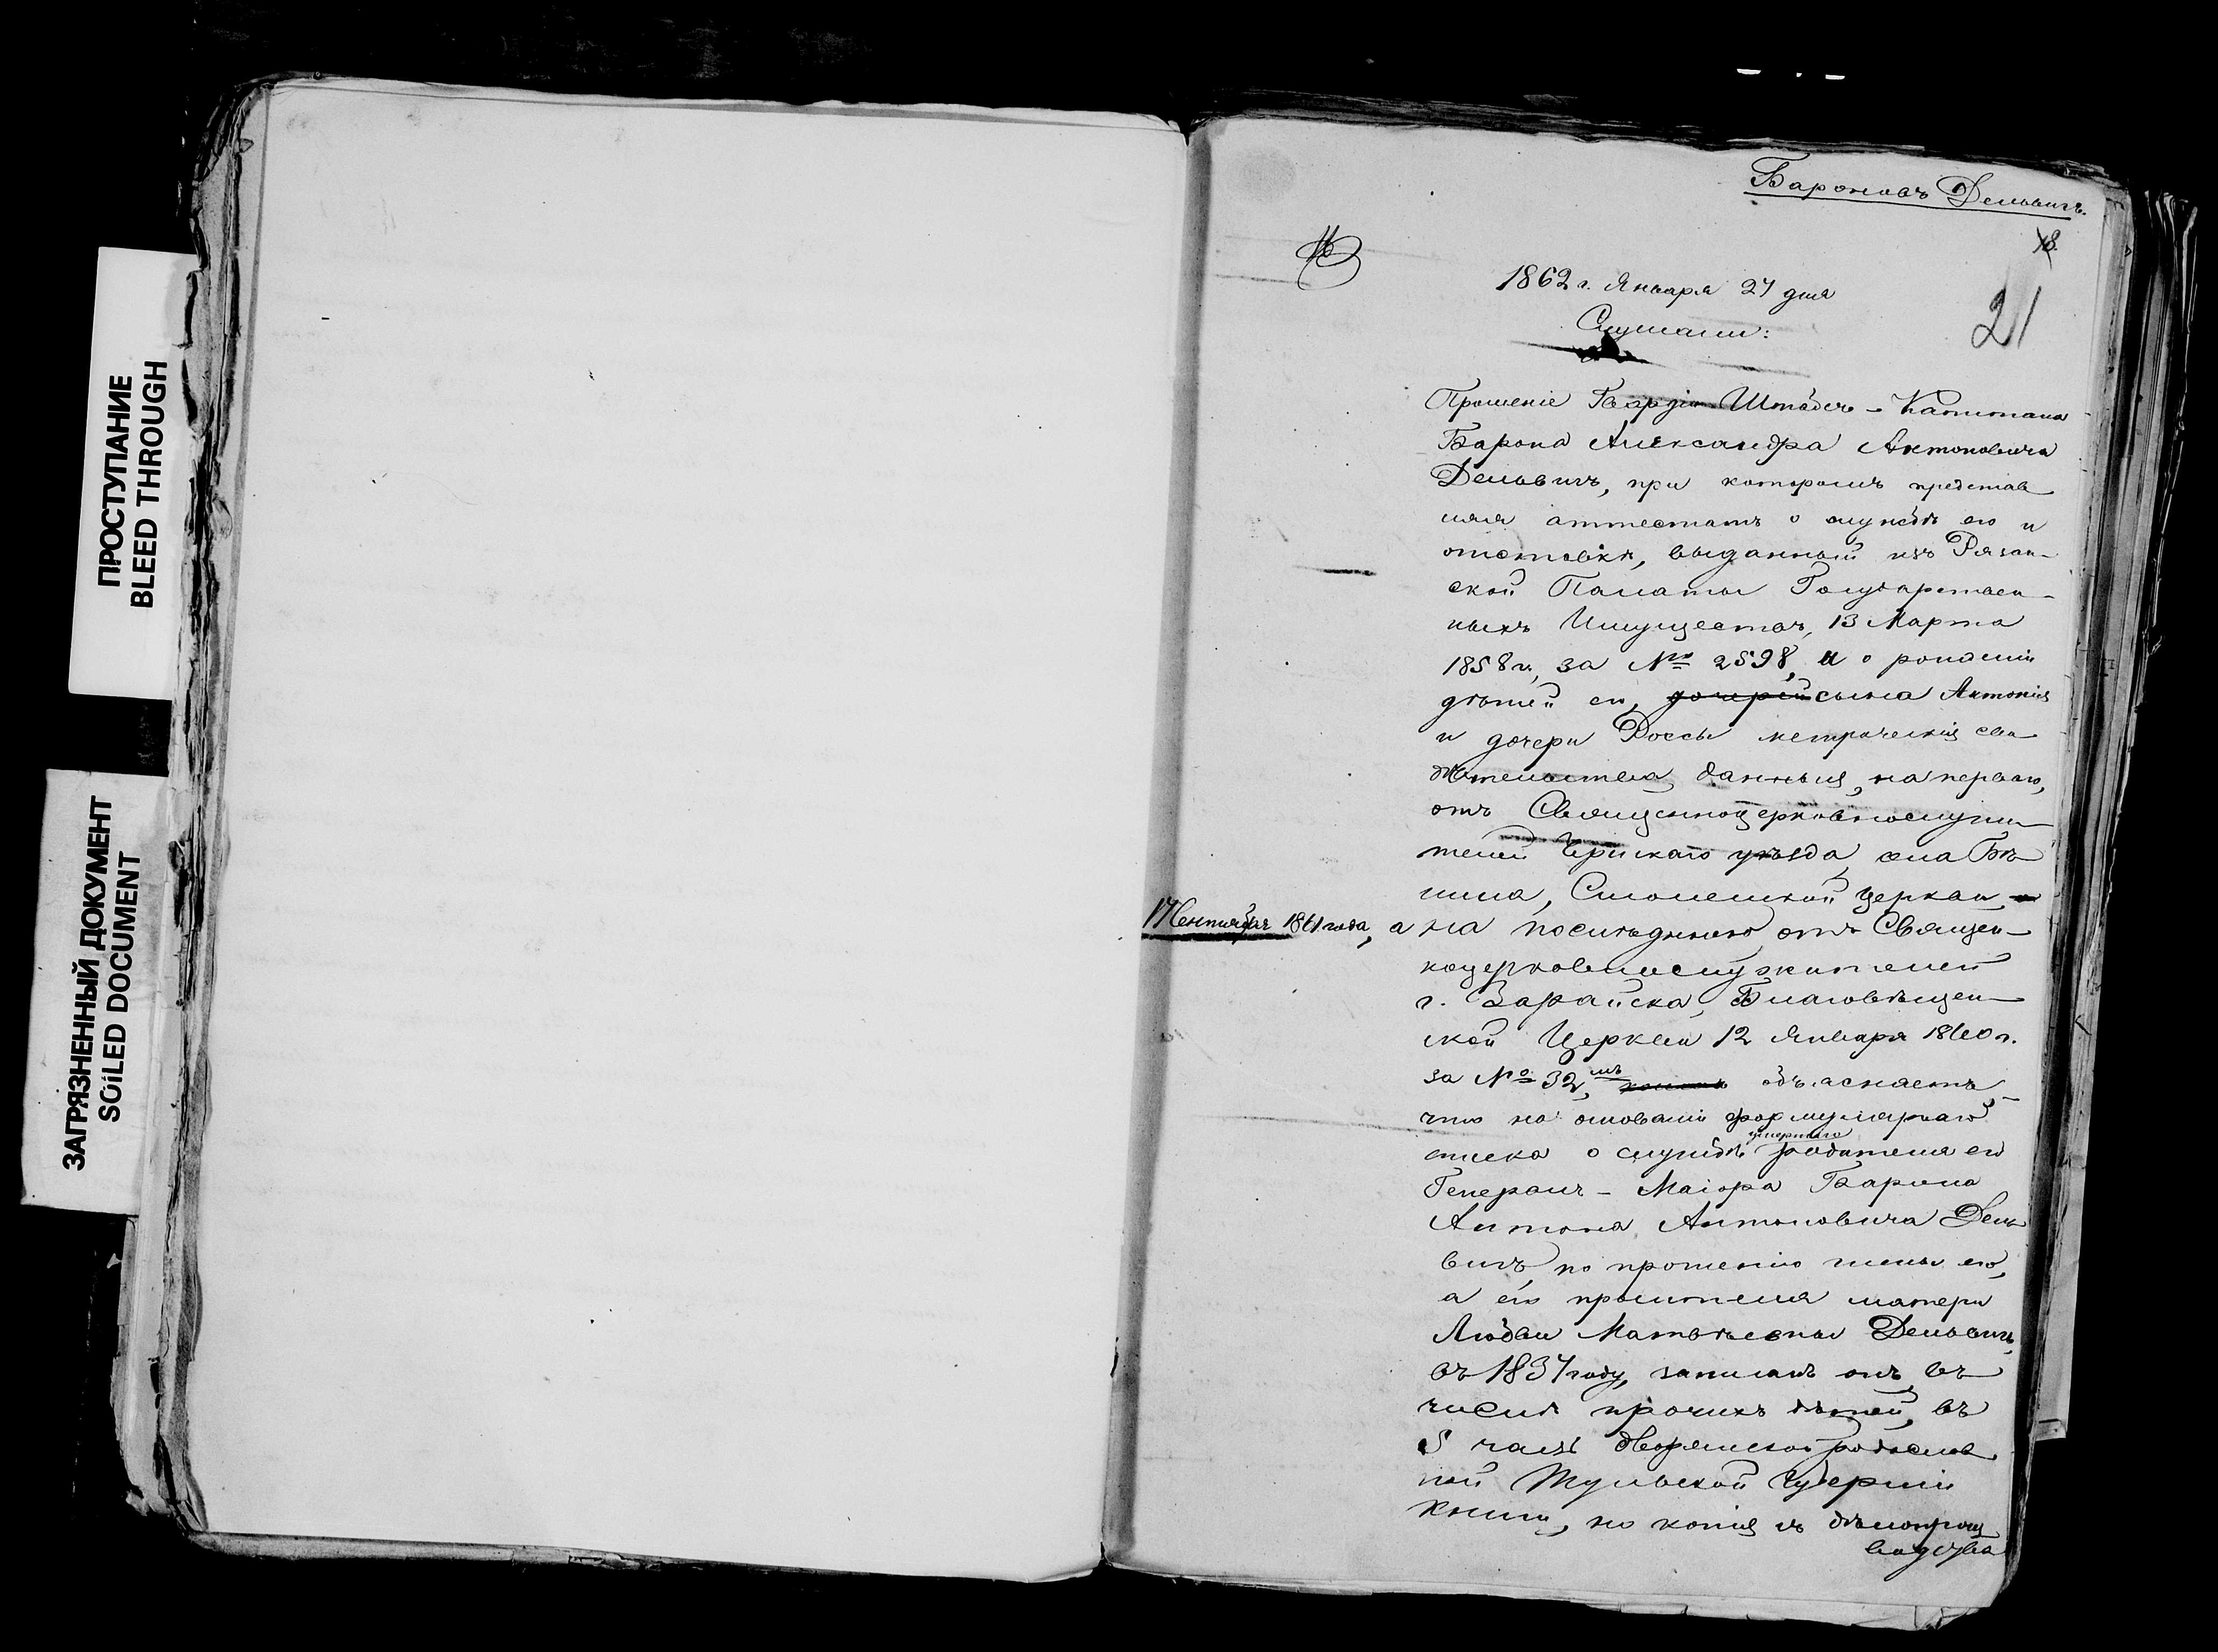 ПРОСТУПАНИЕ
BLEED THROUGH
ЗАГРЯЗНЕННЫЙ ДОКУМЕНТ
SOILED DOCUMENT
Бароновъ Дельвигъ.
1862 г. Января 27 дня
21
Слушали:
Прошеніе Гвардіи Штабсъ-Капитана
Барона Александра Антоновича
Дельвигъ, при которомъ представ
ляя аттестатъ о службѣ его и
отставкѣ, выданный изъ Рязан-
ской Палаты Государствен-
ныхъ Имуществъ, 13 Марта
1858 г, за № 2598, и о рожденіи
дѣтей его, дочерей сына Антонія
и дочери Россы метрическія сви
дѣтельства данныя, на перваго,
отъ Священноцерковнослужи
телей Чернскаго уѣзда, села Бѣ
лина, Смоленской церкви
17 Сентября 1861 года, а на послѣднюю отъ Священ-
ноцерковнослужителей
г. Зарайска, Благовѣщен-
ской Церкви 12 Января 1860 г.
за № 32, объясняетъ
что на основаніи формулярнаго
умершаго
списка о службѣ родителя его
Генералъ-Маіора Барона
Антона Антоновича Дель
вигъ, по прошенію жены его,
а его просителя матери
Любви Матвѣевны Дельвигъ,
въ 1837 году, записанъ онъ, въ
числѣ прочихъ дѣтей, въ
5 часть дворянской родослов
ной Тульской Губерніи
книги, но копія съ дѣлопроиз
водства